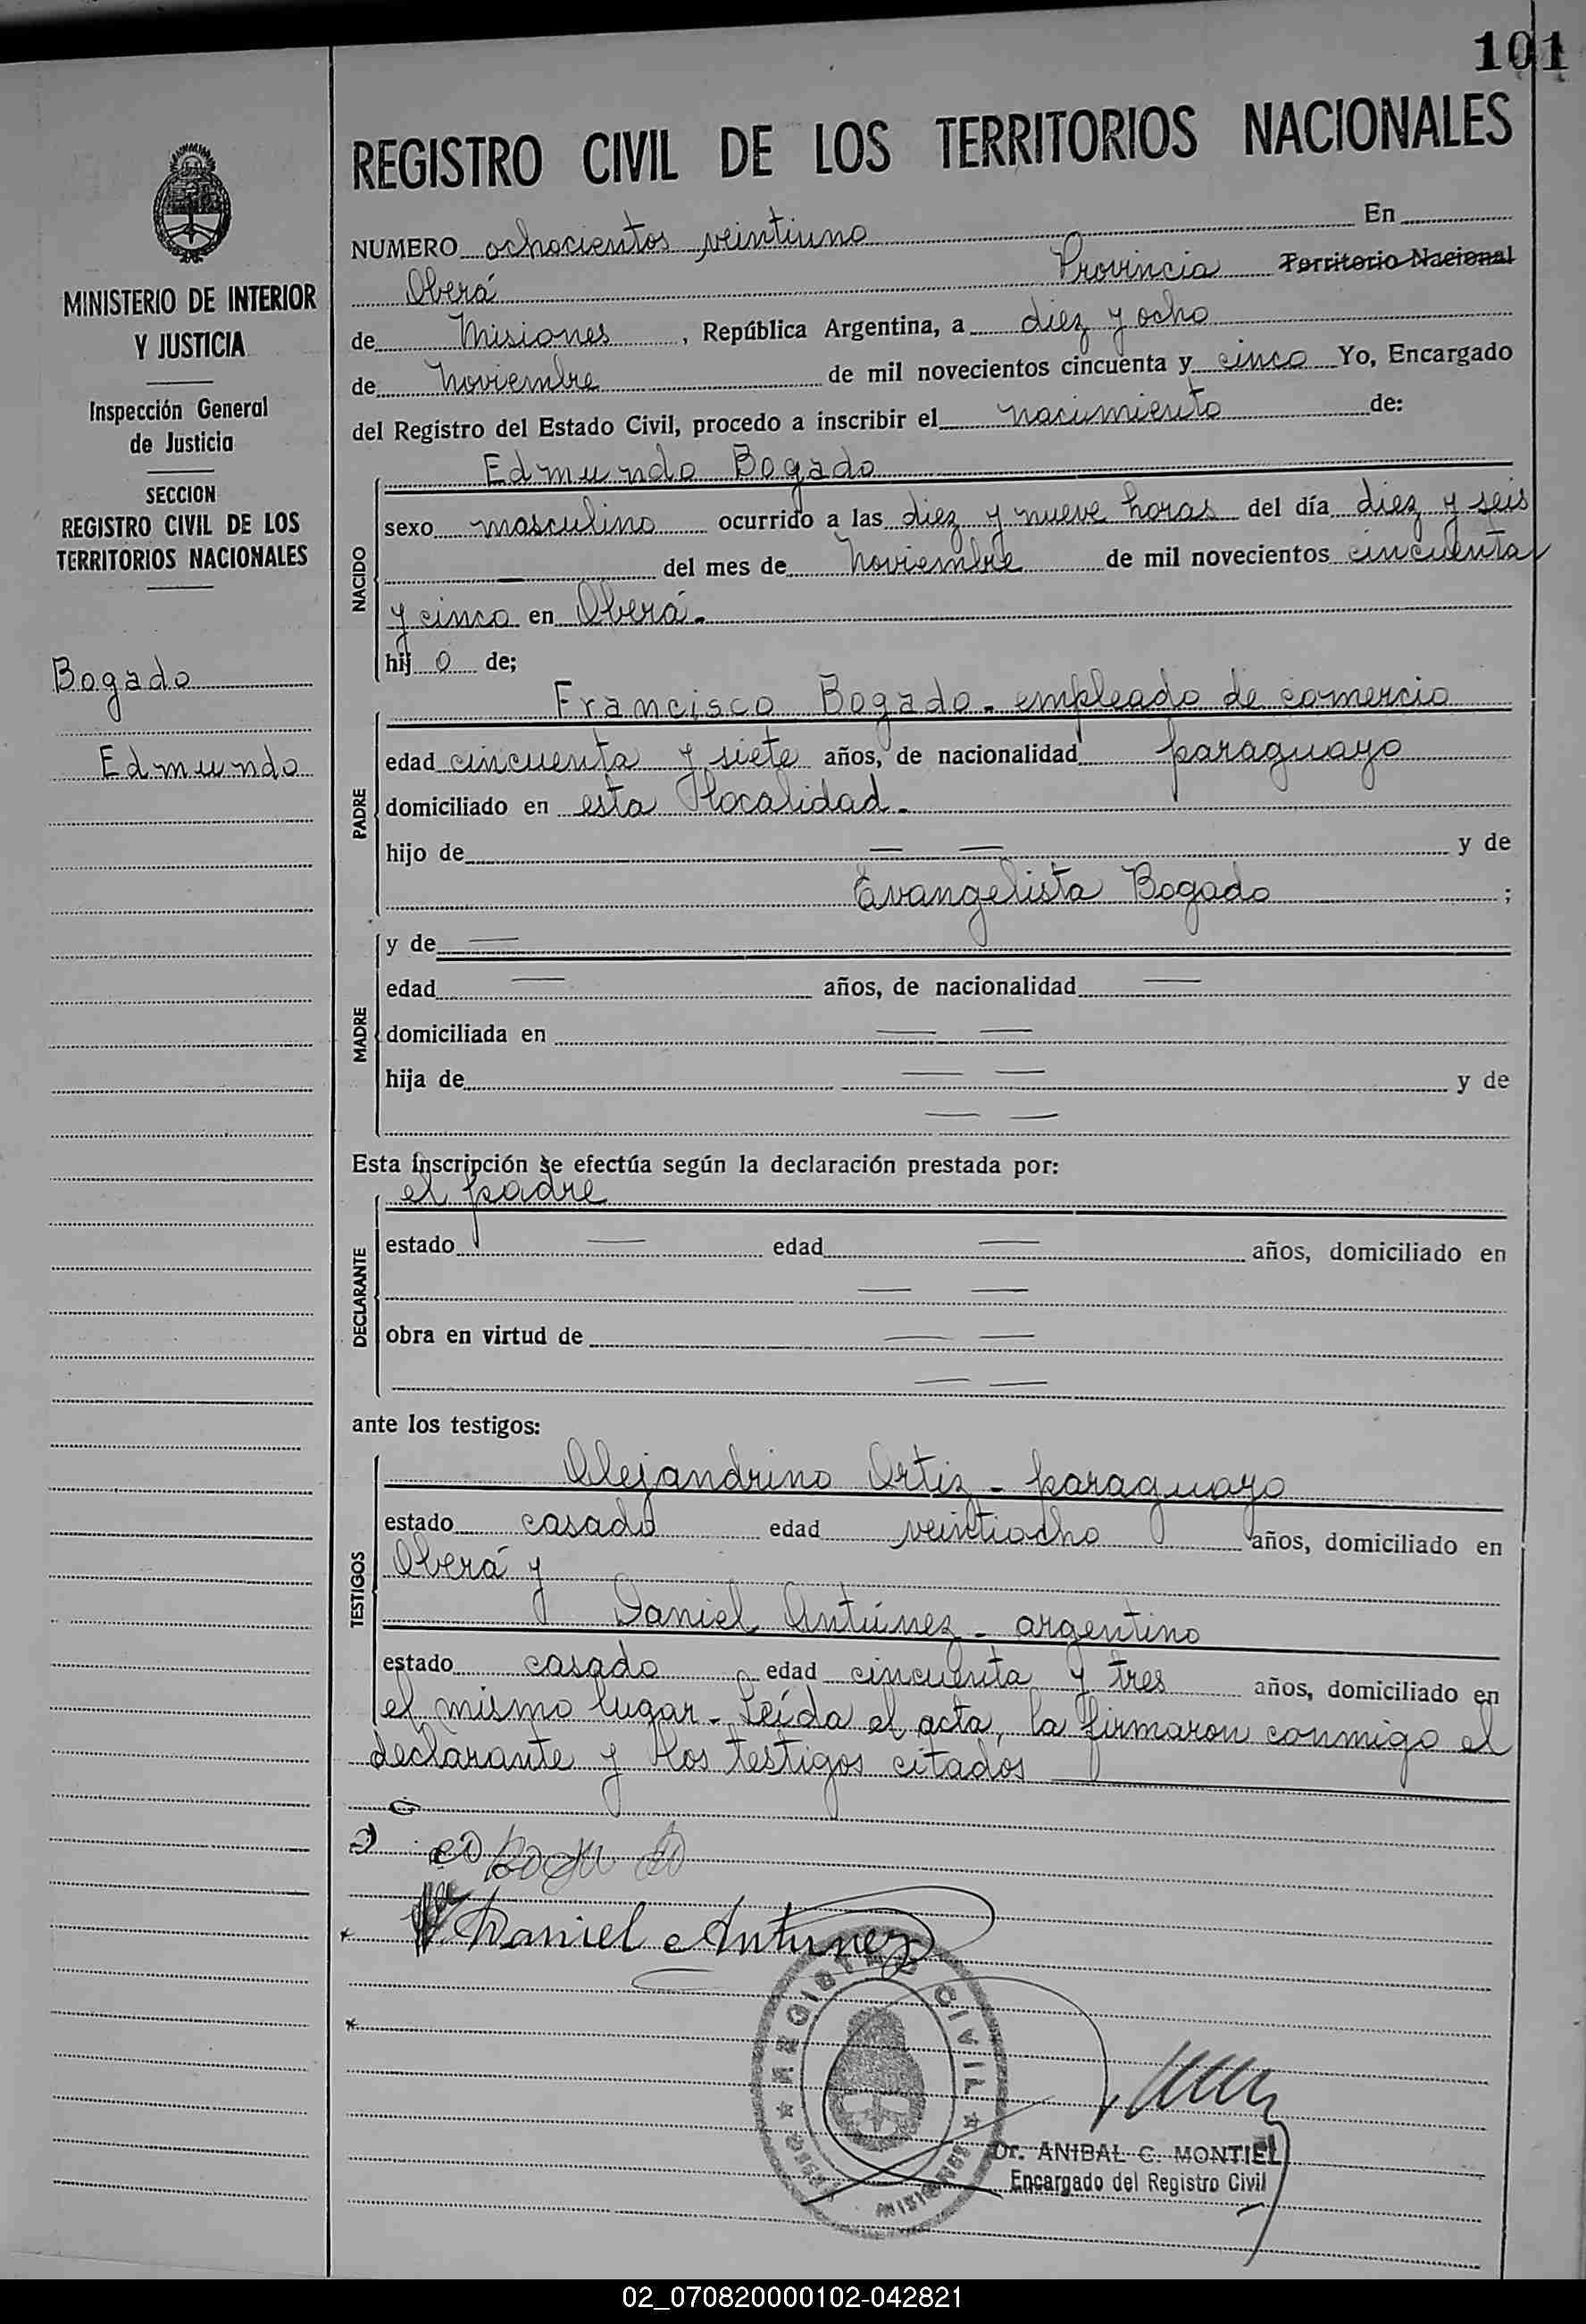 101
REGISTRO CIVIL DE LOS TERRITORIOS NACIONALES
MINISTERIO DE INTERIOR
Y JUSTICIA
Inspección General
de Justicia
SECCION
REGISTRO CIVIL DE LOS
TERRITORIOS NACIONALES
Bogado
Edmundo
NUMERO ochocientos veintiuno En
Oberá Provincia Territorio Nacional
de Misiones, República Argentina, a diez y ocho
de Noviembre de mil novecientos cincuenta y cinco Yo, Encargado
del Registro del Estado Civil, procedo a inscribir el nacimiento de:
NACIDO
Edmundo Bogado
sexo masculino ocurrido a las diez y nueve horas del día diez y seis
— del mes de Noviembre de mil novecientos cincuenta
y cinco en Oberá.
hij o de;
PADRE
Francisco Bogado - empleado de comercio
edad cincuenta y siete años, de nacionalidad paraguayo
domiciliado en esta localidad.
hijo de — — y de
Evangelista Bogado ;
MADRE
y de —
edad — años, de nacionalidad —
domiciliada en — —
hija de — — y de
— —
Esta inscripción se efectúa según la declaración prestada por:
DECLARANTE
el padre
estado — edad — años, domiciliado en
— —
obra en virtud de — —
— —
ante los testigos:
TESTIGOS
Alejandrino Ortiz - paraguayo
estado casado edad veintiocho años, domiciliado en
Oberá y
Daniel Antúnez - argentino
estado casado edad cincuenta y tres años, domiciliado en
el mismo lugar - Leída el acta, la firmaron conmigo el
declarante y los testigos citados
Daniel Antunez
REGISTRO CIVIL
OBERA MISIONES
Dr. ANIBAL C. MONTIEL
Encargado del Registro Civil
02_070820000102-042821